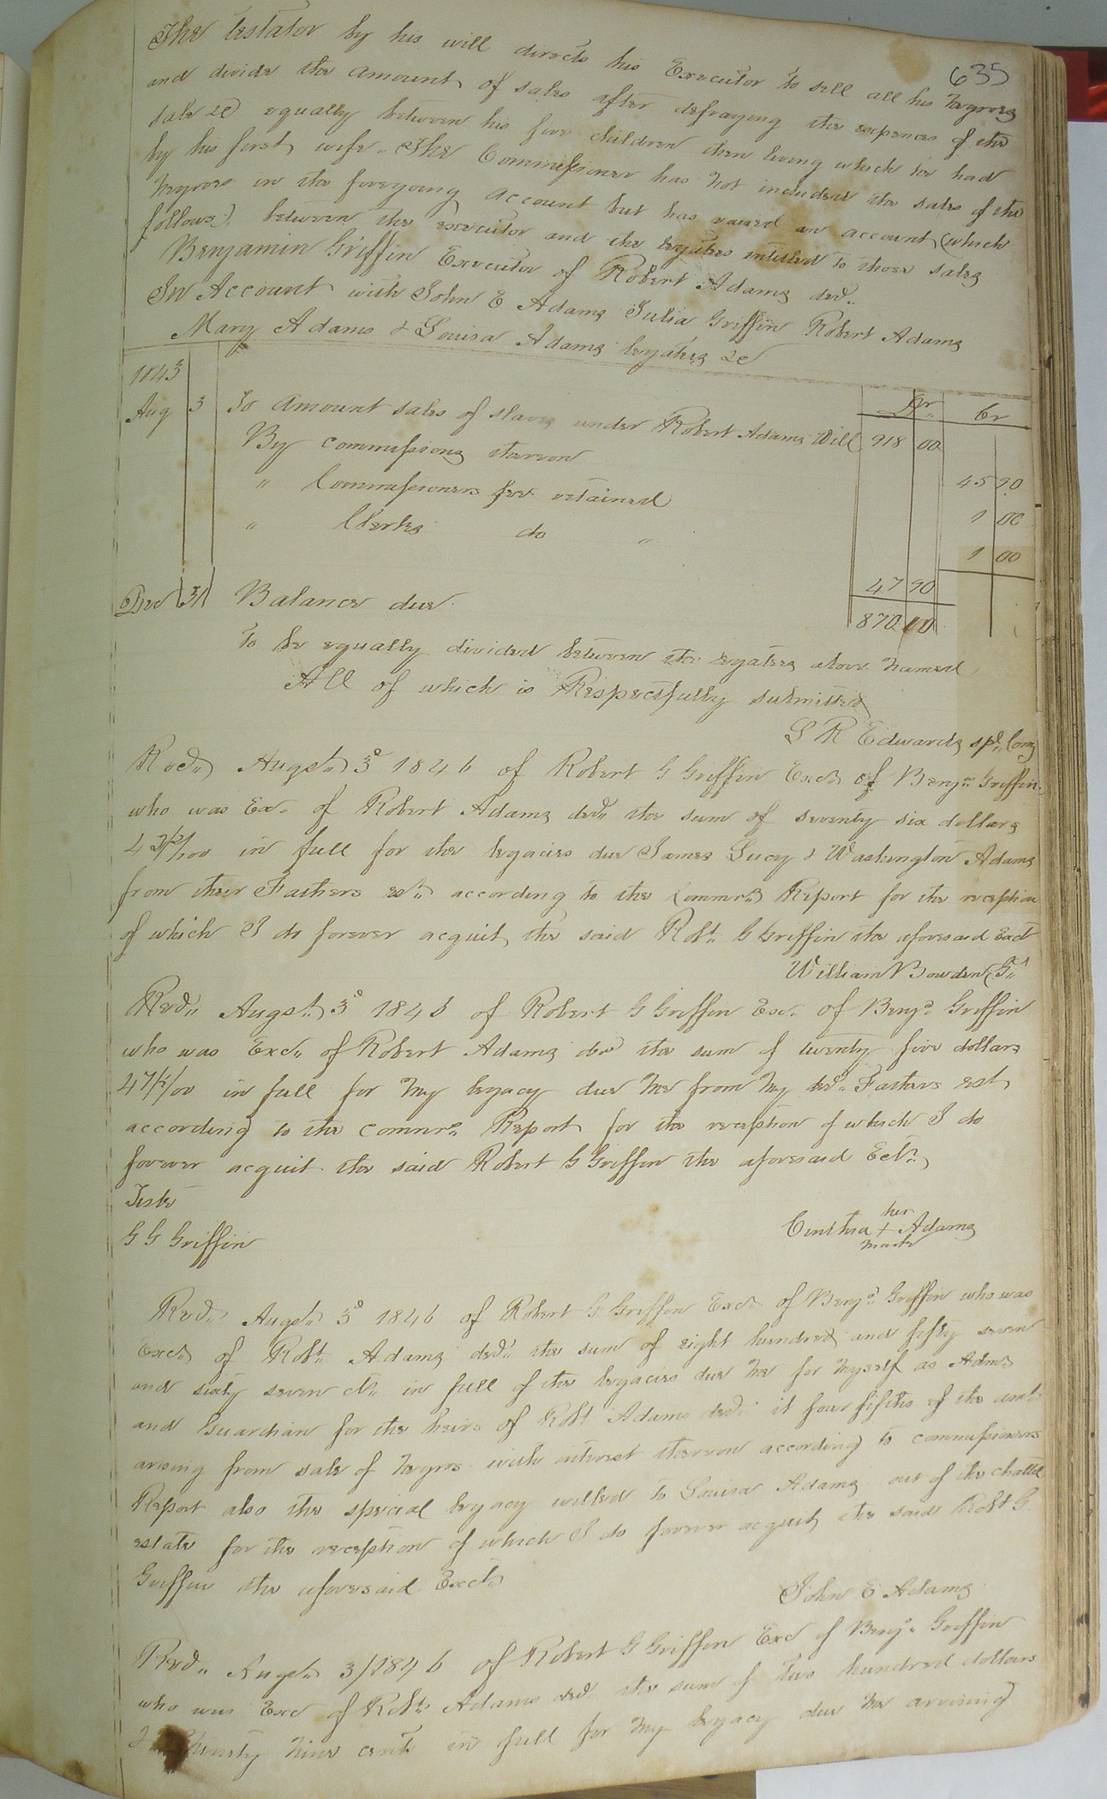 635
The testator by his will directs his Executor to sell all his negroes
and divide the amount of sales after defraying the expences of the
sale &c equally between his five children then living which he had
by his first wife. The Commissioner has not included the sales of the
negroes in the foregoing account but has raised an account (which
follows) between the executor and the legatees intitled to those sales
Benjamin Griffin Executor of Robert Adams decd.
In Account with John E Adams Julia Griffin Robert Adams
Mary Adams & Louisa Adams legatees &c
1843 Dr. Cr
Aug 3 To amount sales of slaves under Robert Adams Will 918 00
By commissions thereon 45 90
" Commissioners fee retained 1 00
" Clerks do " 1 00
47 90
Decr 31 Balance due 870 10
To be equally divided between the legatees above named
All of which is Respectfully submitted
S R Edwards spl. Com
Recd. Augst. 3d 1846 of Robert G Griffin Excr of Benjn Griffin
who was Exr. of Robert Adams decd the sum of seventy six dollars
/100 in full for the legacies due James Lucy & Washington Adams
from their Fathers est. according to the Commrs Report for the reception
of which I do forever acquit the said Robt. G Griffin the aforesaid Exct
William Bowden Gn
Recd. Augst. 3d 1846 of Robert G Griffin Exr. of Benjn Griffin
who was Excr. of Robert Adams decd the sum of twenty five dollars
47/100 in full for my legacy due me from my decd. Fathers est
according to the commrs. Report for the reception of which I do
forever acquit the said Robert G Griffin the aforesaid Ectr.
Teste
her
G G Griffin Cinthia + Adams
mark
Recd. Augst. 3d 1846 of Robert G Griffin Excr of Benjn Griffin who was
Excr. of Robt. Adams decd. the sum of eight hundred and fifty seven
and sixty seven cts. in full of the legacies due me for myself as Admr
and Guardian for the heirs of Robt Adams decd. it four fifths of the amt.
arising from sale of negros with interest thereon according to commissioners
Report also the special legacy willed to Louisa Adams out of the chattel
estate for the reception of which I do forever acquit the said Robt G.
Griffin the aforesaid Exctr.
John E Adams
Recd. Augst. 3/1846 of Robert G Griffin Exc of Benjn. Griffin
who was Exc of Robt. Adams decd. the sum of two hundred dollars
nine cents in full for my legacy due me arriseing